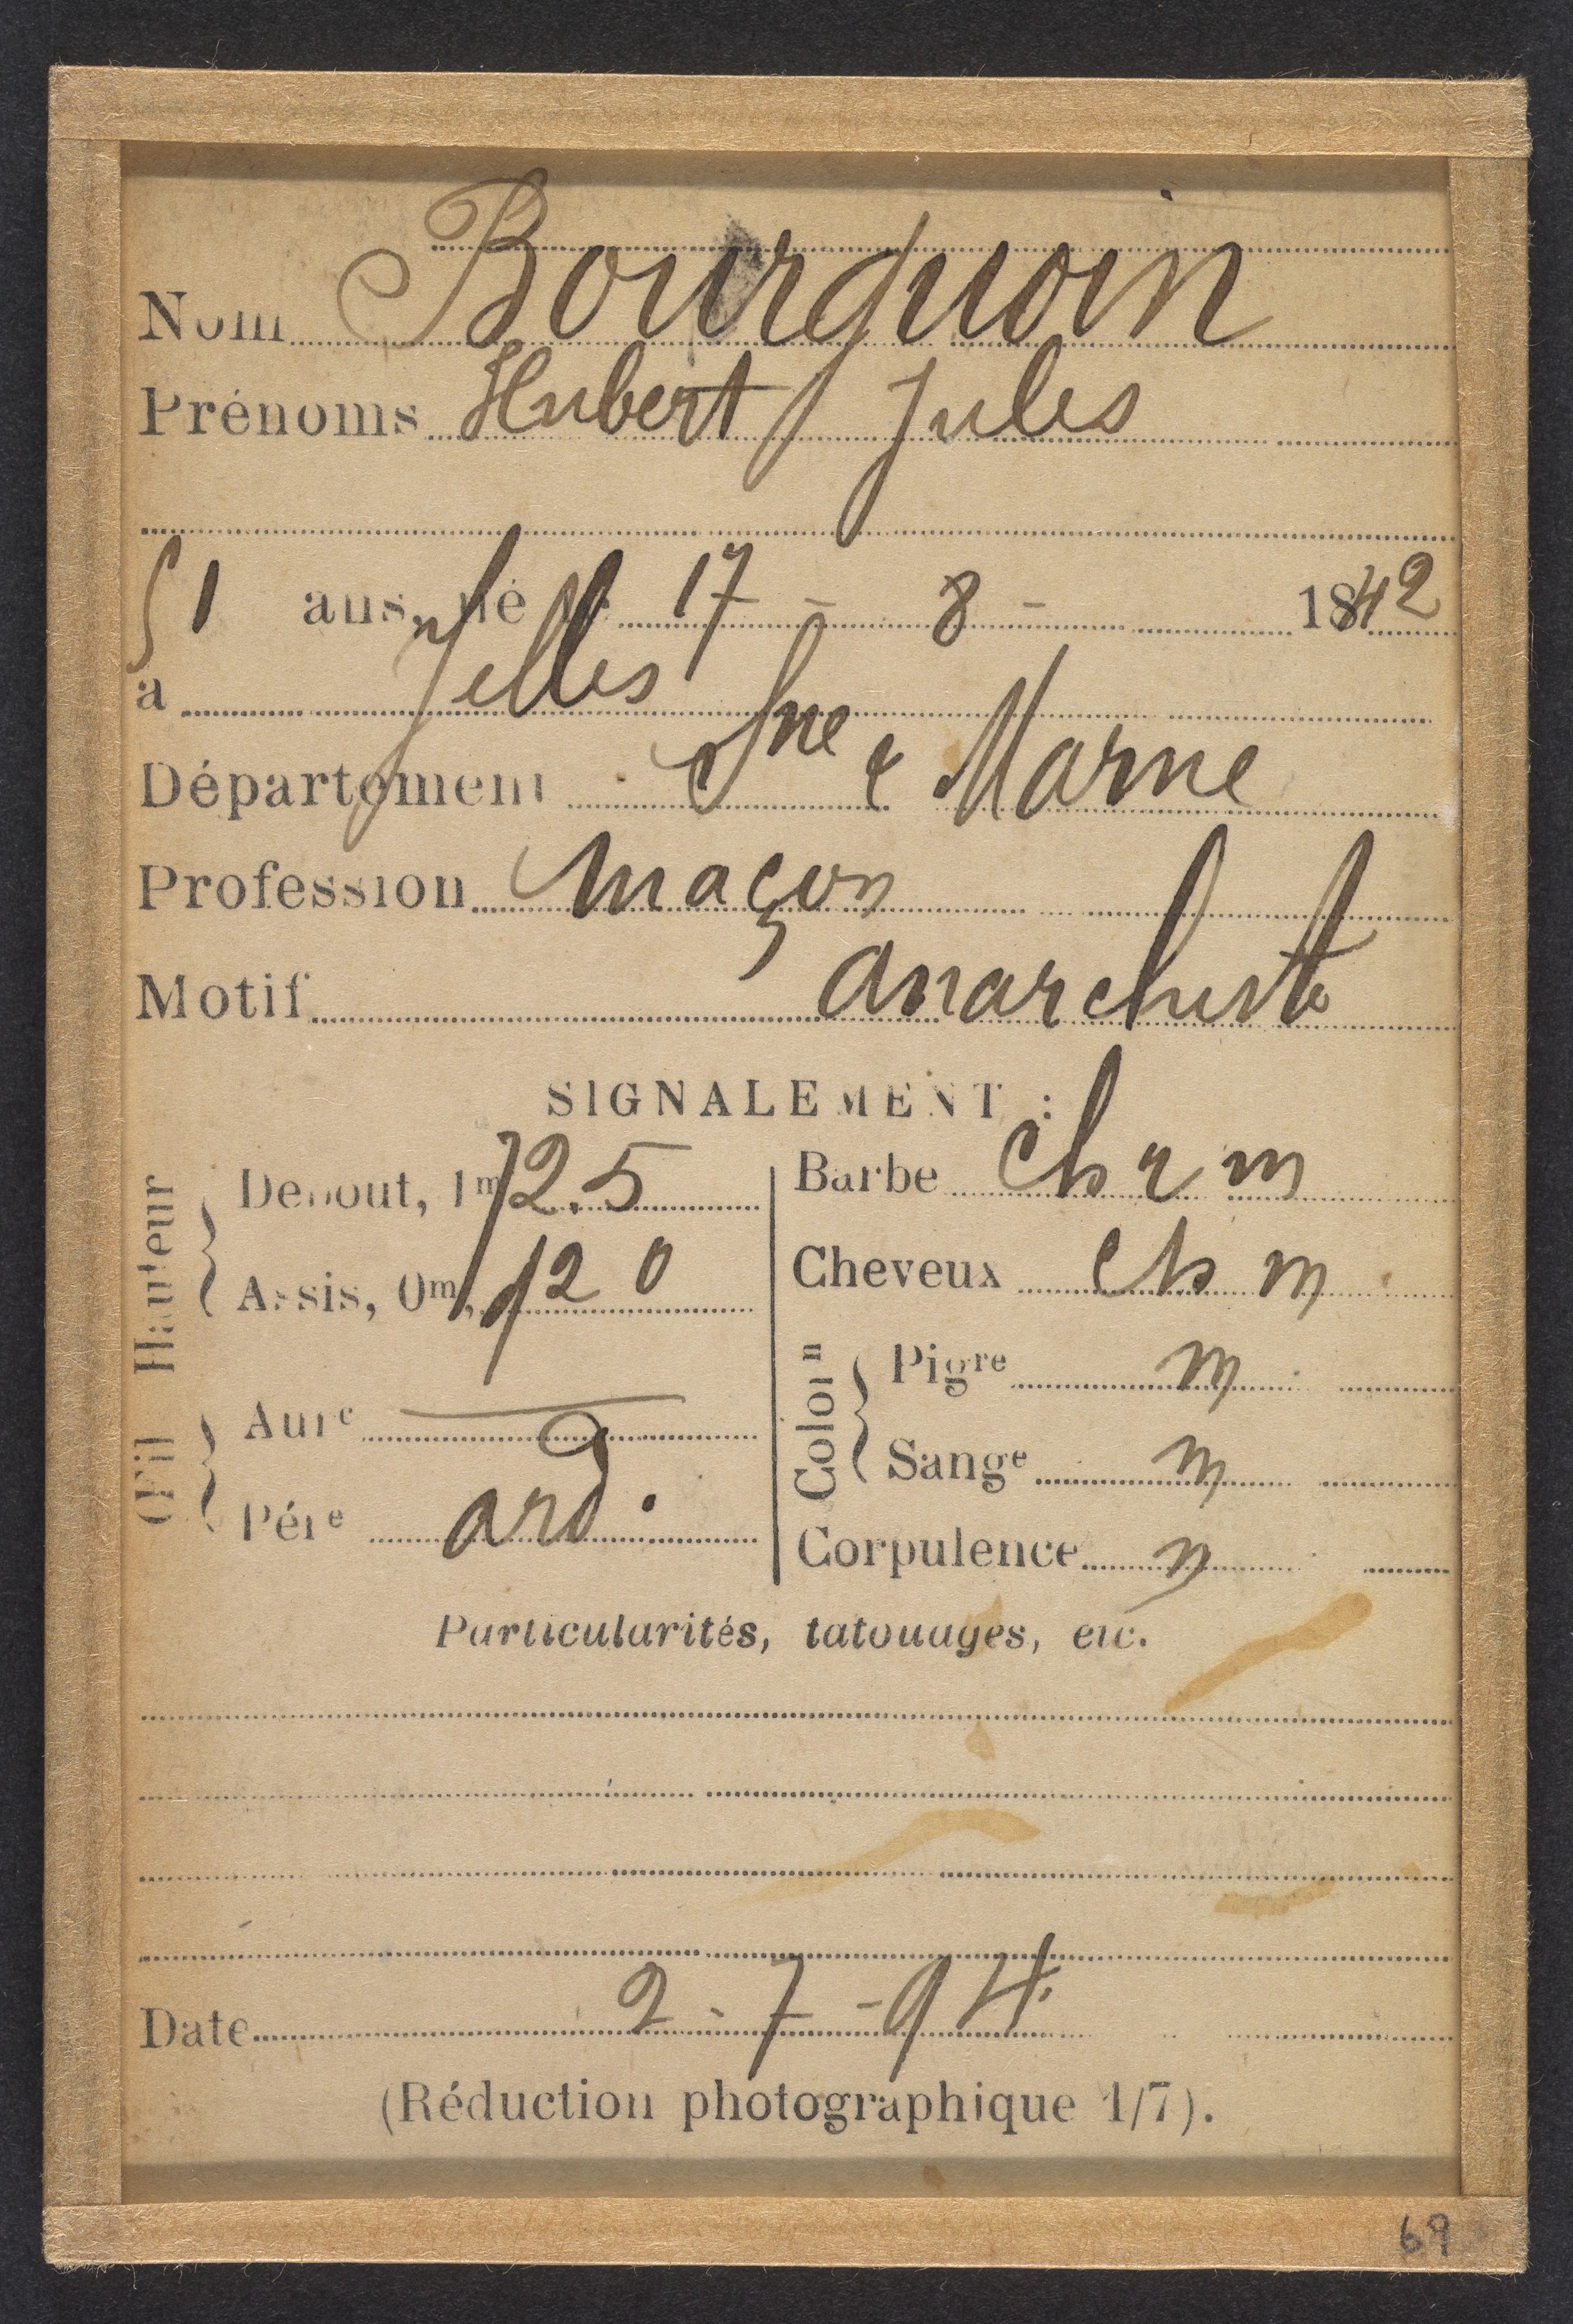 Nom Bourguoin
Prénoms Hubert Jules
51 ans, né le 17 - 8 - 1842
à Jelles
Département Sne & Marne
Profession maçon
Motif anarchiste
SIGNALEMENT :
Hauteur
Debout, 1m 72.5
Assis, 0m,
Œil
Aure
Pére ard.
Barbe ch r m
Cheveux ch m
Coloron
Pigre m
Sange m
Corpulence m
Particularités, tatouages, etc.
Date 2-7-94.
(Réduction photographique 1/7).
69